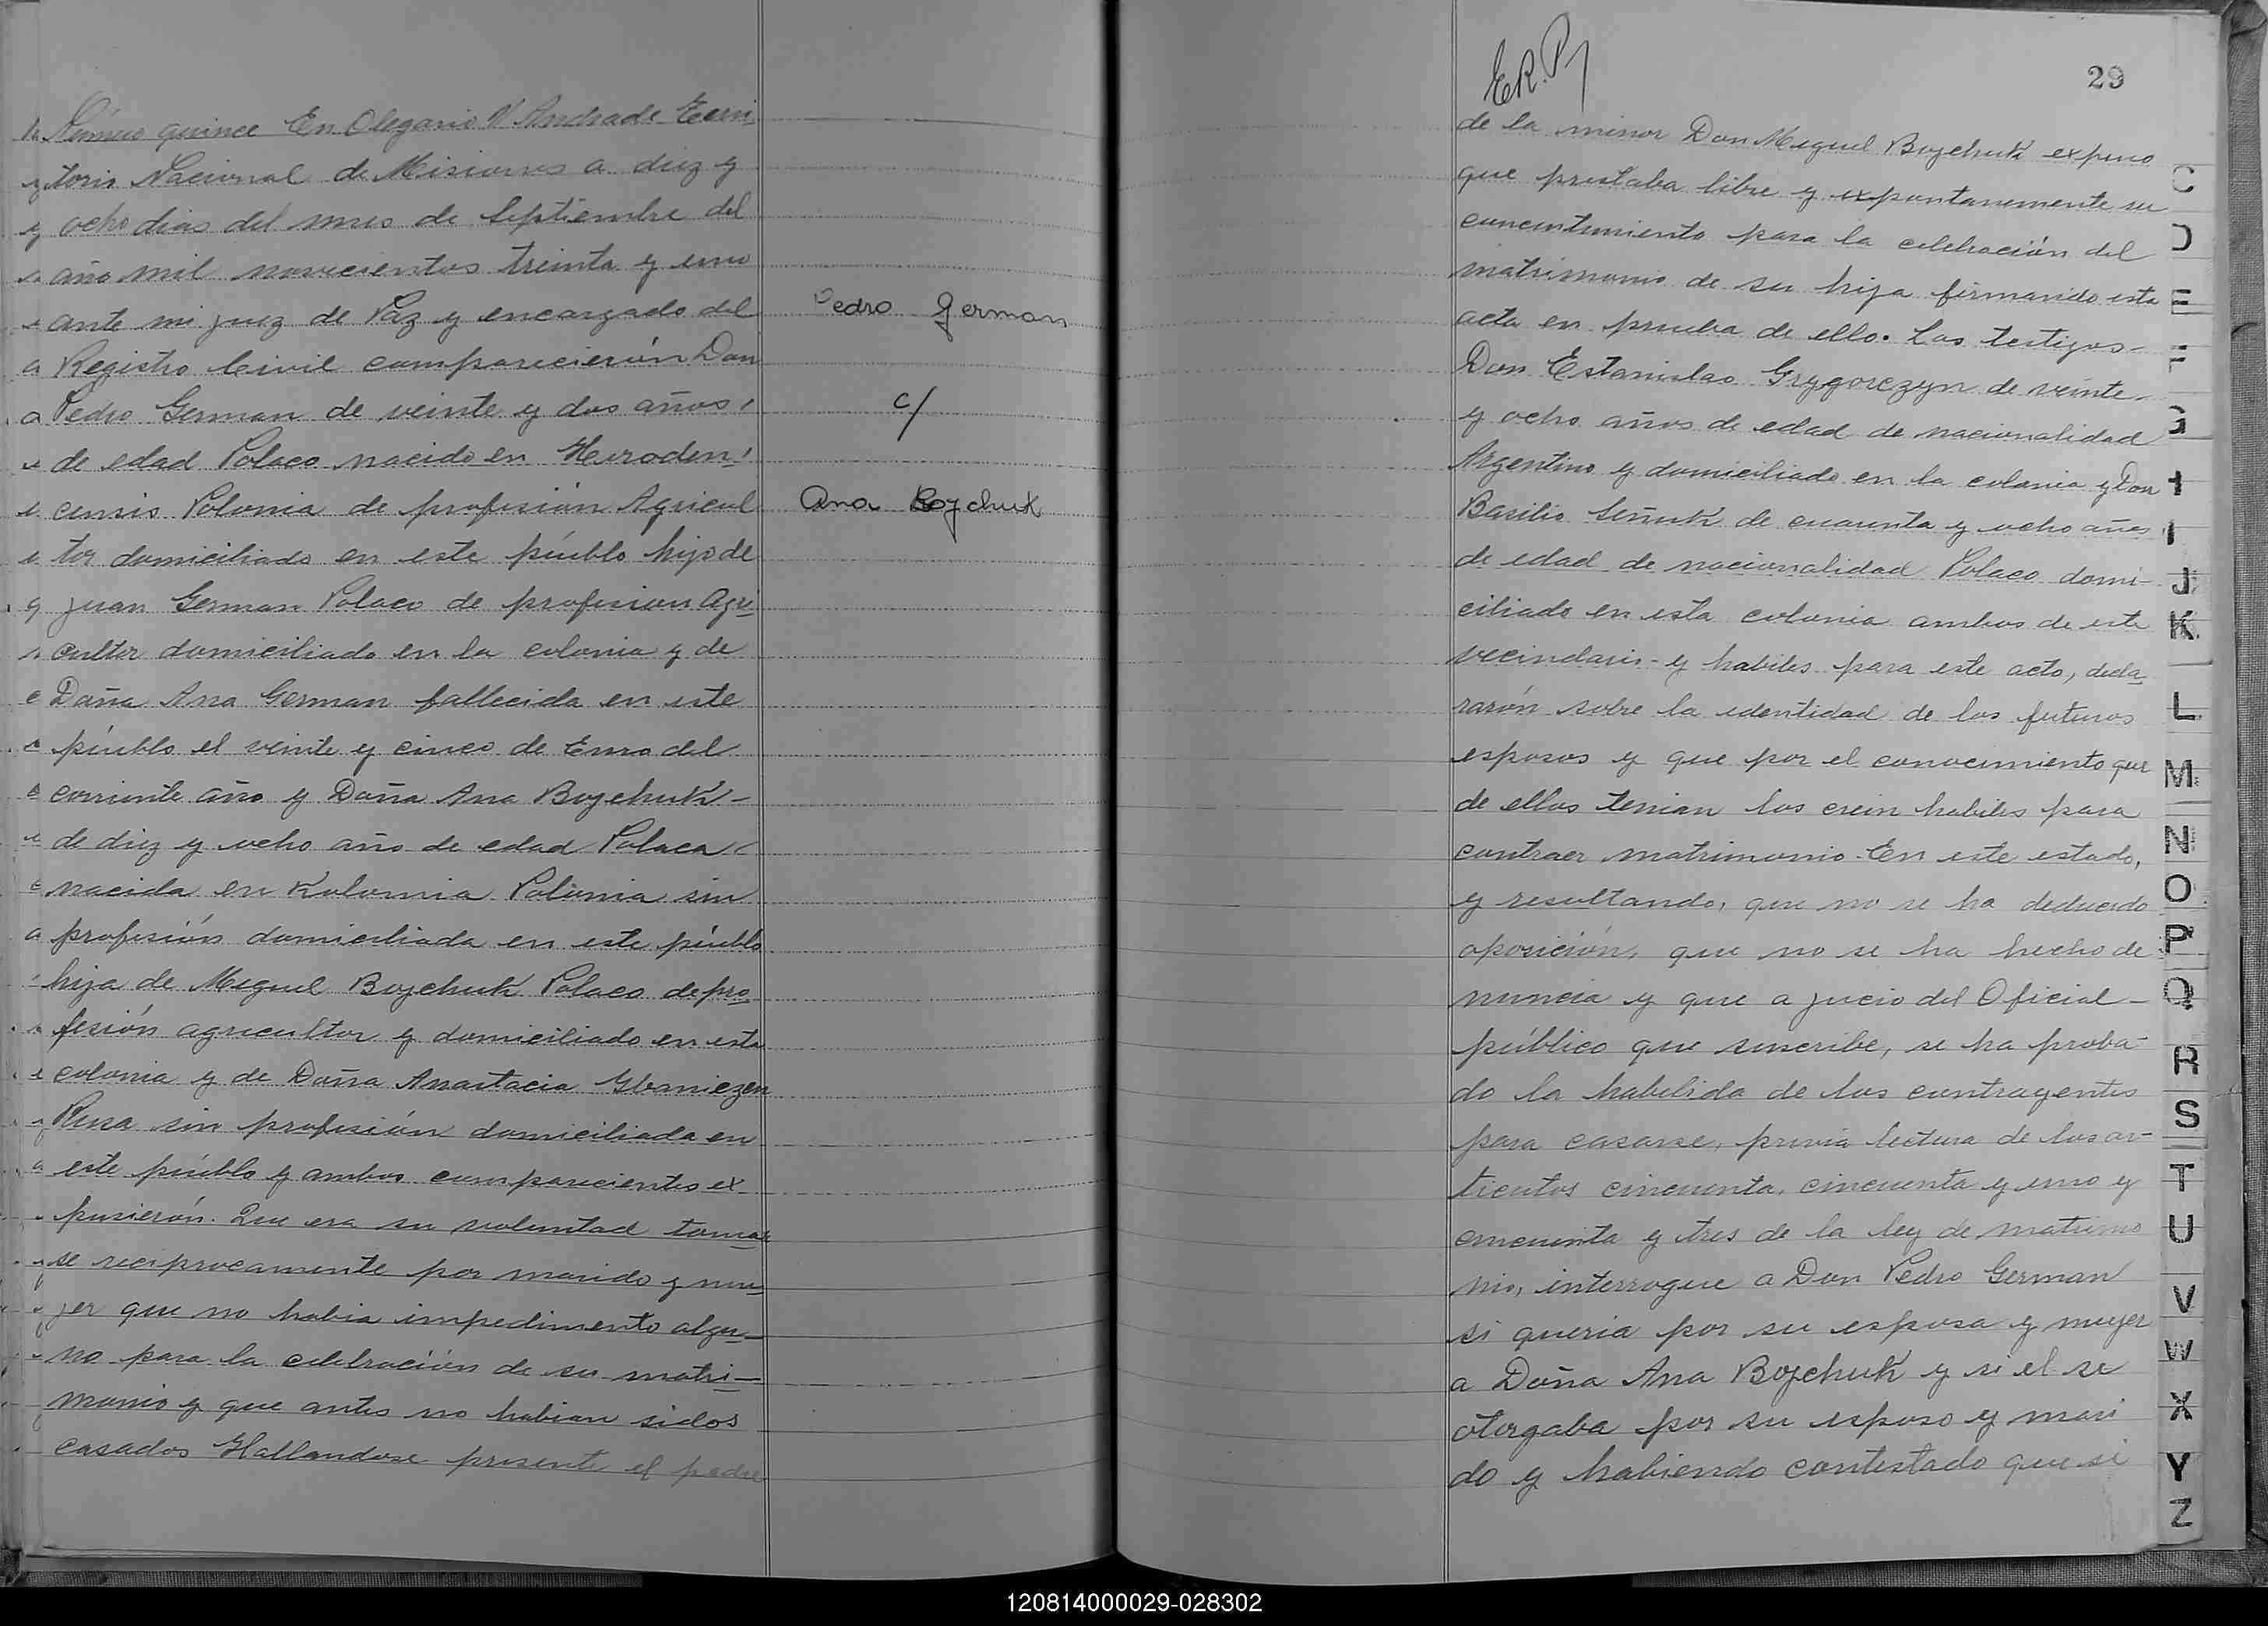 Número quince En Olegario V Andrade Terri-
torio Nacional de Misiones a diez y
ocho dias del mes de Septiembre del
año mil novecientos treinta y uno
ante mi juez de Paz y encargado del
Registro Civil comparecierón Don
Pedro German de veinte y dos años
de edad Polaco nacido en Heroden-
censis Polonia de profesión Agricul
tor domiciliado en este púeblo hijo de
Juan German Polaco de profesion Agri-
cultor domiciliado en la colonia y de
Doña Ana German fallecida en este
púeblo el veinte y cinco de Enero del
corriente año y Doña Ana Boychuk-
de diez y ocho año de edad Polaca
nacida en Kolomia Polonia sin
profesión domiciliada en este púeblo
hija de Miguel Boychuk Polaco de pro-
fesión agricultor y domiciliado en esta
colonia y de Doña Anastacia
Rusa sin profesión domiciliada en
este púeblo y ambos comparecientes ex
pusierón. Que era su voluntad tomar-
se reciprocamente por marido y mu-
jer que no habia impedimento algu-
no para la celebración de su matri-
monio y que antes no habian sidos
casados Hallandose presente el padre
Pedro German
c/
Ana Bojchuk
E.R.P.
29
de la minor Don Miguel Boychuk expuso
que prestaba libre y expontanemente su
concentimiento para la celebración del
matrimonio de su hija firmando esta
acta en prueba de ello. Los testigos-
Don Estanislao Grygorczyn de veinte-
y ocho años de edad de nacionalidad
Argentino y domiciliado en la colonia y Don
Basilio Señuk de cuarenta y ocho años
de edad de nacionalidad Polaco domi-
ciliado en esta colonia ambos de este
vecindario- y habiles para este acto, decla-
rarón sobre la identidad de los futuros
esposos y que por el conocimiento que
de ellos tenian los crein habiles para
contraer matrimonio. En este estado,
y resultando, que no se ha deducido
oposición, que no se ha hecho de
nuncia y que a jucio del Oficial-
público que suscribe, se ha proba-
do la habilida de los contrayentes
para casarse, previa lectura de los ar-
ticulos cincuenta, cincuenta y uno y
cincuenta y tres de la ley de matrimo
nio, interrogue a Don Pedro German
si queria por su esposa y mujer
a Doña Ana Bojchuk y si el se
otorgaba por su esposo y mari
do y habiendo contestado que si
C
D
E
F
G
H
I
J
K
L
M
N
O
P
Q
R
S
T
U
V
W
X
Y
Z
120814000029-028302